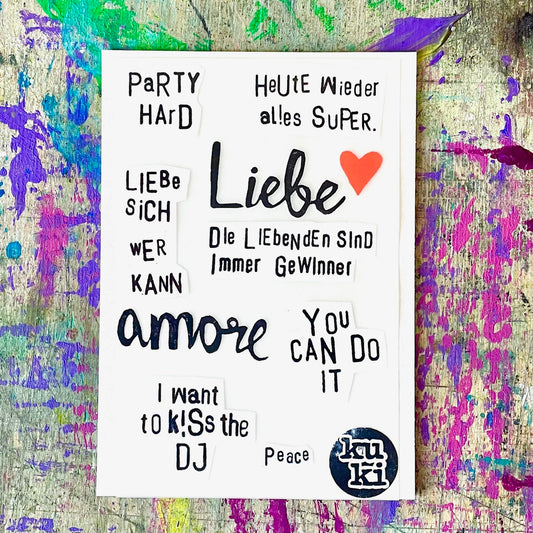 PaRTY
HArD
HeUtE Wieder
alles SuPER.
Liebe
LIEBe
SiCH
wER
KANN
DIe LIEBeNdEn SInD
Immer GeWInner
amore
YOU
CAN DO
IT
I want
to k!Ss the
DJ
Peace
ku
ki